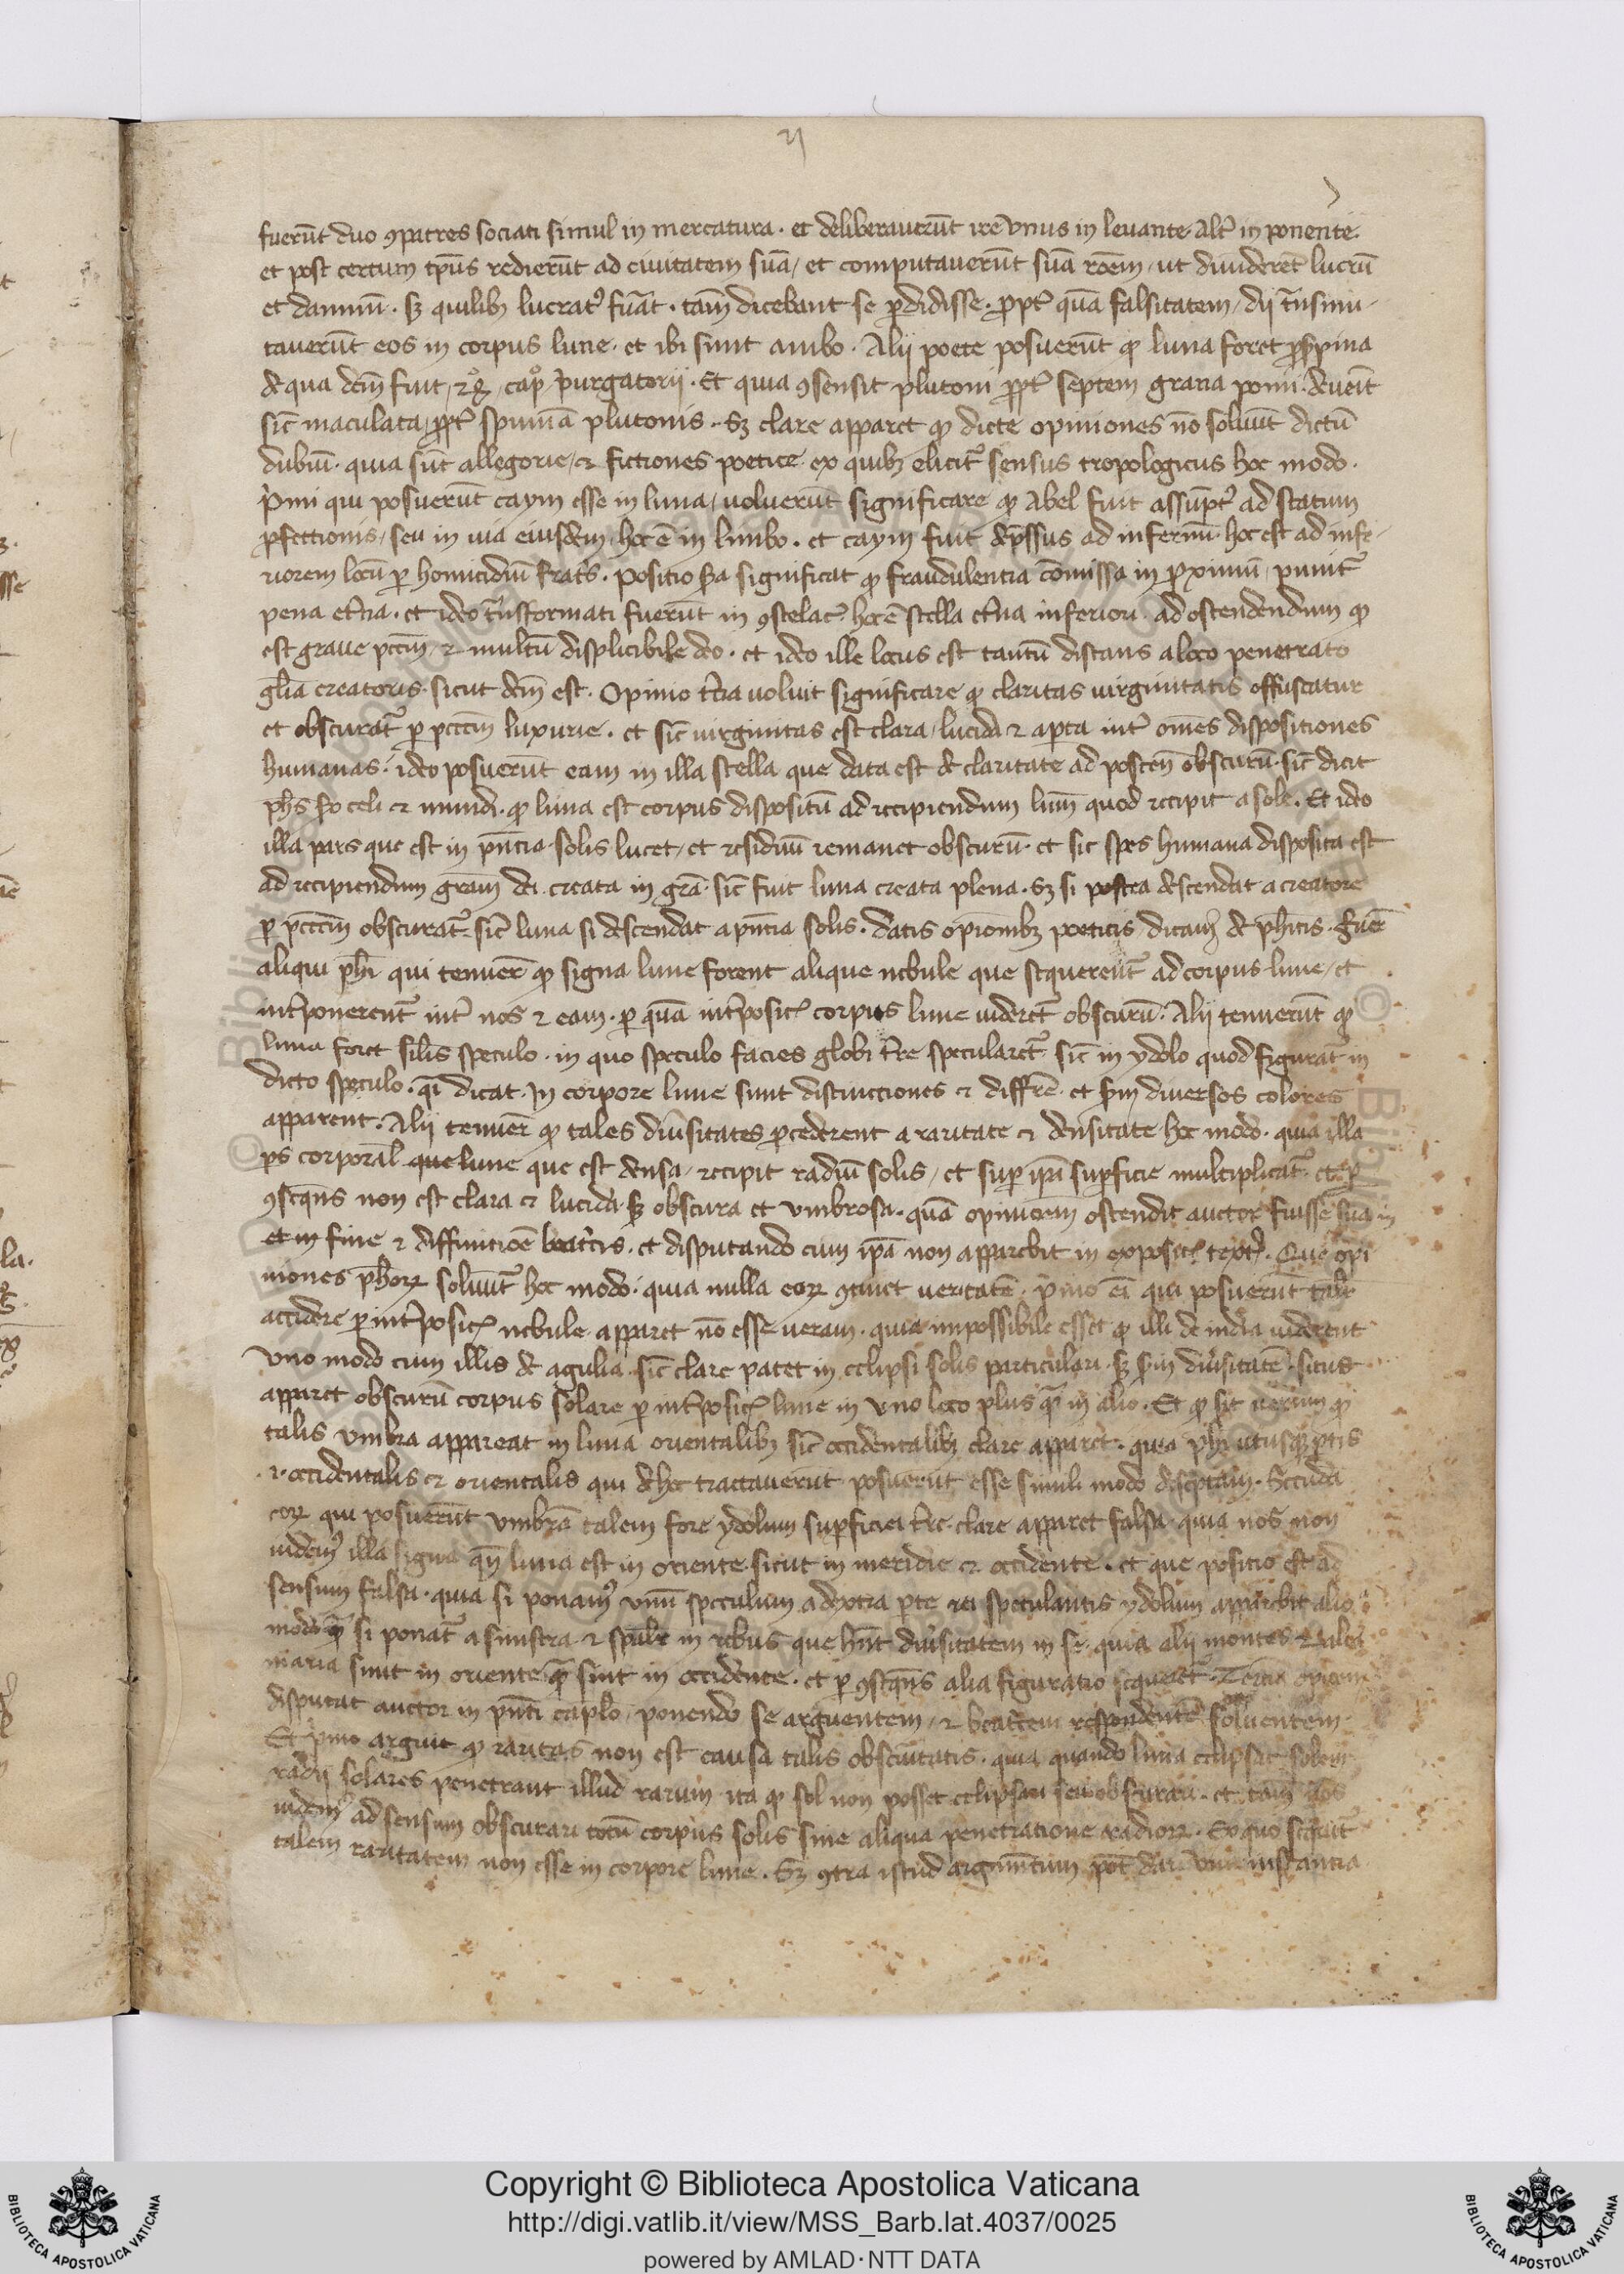 ij
fuerūt duo ꝯpatres sociati simul in mercatura. et deliberauerūt ire vnus in leuante Alt̄ in ponente.
et post certum tp̄us redierūt ad ciuitatem suā / et computauerūt suā rōem / ut diuiderēt lucrū
et damnū. sꝫ quilibꝫ lucratꝰ fuāt. tam̄ dicebant se ꝑdidisse. ꝓpt̄ quā falsitatem / dij trāsmu-
tauerūt eos in corpus lune. et ibi sunt ambo. Alij poete posuerūt ꝙ luna foret ꝓspina
de qua dc̄m fuit capᵒ purgatorij. Et quia ꝯsensit plutoni ꝓpt̄ septem grana pomi. deueīt
sic̄ maculata / ꝓpt̄ spumā plutonis. Sꝫ clare apparet ꝙ dicte opiniones nō soluūt dictū
dubiū. quia sūt allegorie / et fictiones poetice ex quibꝫ elicit᷑ sensus tropologicus hoc modo.
p̄mi qui posuerūt caym esse in luna / uoluerūt significare ꝙ Abel fuit assūptꝰ ad statum
ꝑfectionis / seu in uia eiusdem hoc ē in limbo. et caym fuit dep̄ssus ad infernū. hoc est ad infe-
riorem locū ꝑ homicidiū fratris. Positio sc̄da significat ꝙ fraudulentia cōmissa in ꝓximū punit᷑
pena et̄na. et ideo trāsformati fuerūt in ꝯstelac̄ hoc ē stella et̄na inferiori ad ostendendum ꝙ
est graue pctm̄ / et multū displicibile deo. et ideo ille locus est tantū distans a loco penetrato
gl̄ia creatoris. sicut dc̄m est. Opinio t̄cia uoluit significare ꝙ claritas uirginitatis offuscatur
et obscurat᷑ ꝑ pcctm̄ luxurie. et sic̄ uirginitas est clara / lucida et aꝑta int̄ om̄es dispositiones
humanas. ideo posuerūt eam in illa stella que data est de claritate ad postm̄ obscurū. sic̄ dicit
ph̄s celi et mundi. ꝙ luna est corpus dispositū ad recipiendum lum̄ quod recipit a sole. Et ideo
illa pars que est in p̄ntia solis lucet / et residuū remanet obscurū. et sic sp̄es humana disposita est
ad recipiendum gr̄am dei creata in gr̄a. sic̄ fuit luna creata plena. Sꝫ si postea descendat a creatore
ꝑ pcctm̄ obscurat᷑. sic̄ luna si descendat a p̄ntia solis. datis opiōnibꝫ poeticis dicamꝰ de ph̄icis. fuer̄
aliqui ph̄i qui tenuer̄ ꝙ signa lune forent alique nebule que sequerent᷑ ad corpus lune / et
int̄ponerent᷑ int̄ nos et eam. ꝑ quā int̄posic̄ corpus lune uideret᷑ obscurū. Alij tenuerūt ꝙ
luna foret sil̄is speculo. in quo speculo facies globi t̄re specularet᷑ sic̄ in ydolo quod figurat᷑ in
dicto speculo. q̄i dicat. In corpore lune sunt distinctiones et diffrē. et scd̄m diuersos colores
apparent. Alij tenuer̄ ꝙ tales diūsitates ꝓcederent a raritate et densitate hoc modo. quia illa
ps corporal̄ que lune que est densa / recipit radiū solis / et suꝑ ip̄a suꝑficie multiplicat᷑. et ꝑ
ꝯseqn̄s non est clara et lucida sꝫ obscura et vmbrosa. quā opinionem ostendit auctor fuisse suā in
et in fine et diffinitiōe beatcis. et disputando cum ip̄a non apparebit in exposic̄ text̄. Que opi
niones ph̄orꝝ soluūt᷑ hoc modo. quia nulla eorꝝ ꝯtinet ueritatē. p̄mo eī qui posuerūt talr̄
accidere ꝑ int̄posic̄ nebule apparet nō esse ueram. quia impossibile esset ꝙ illi de india uiderent
vno modo cum illis de agulia. sic̄ clare patet in eclipsi solis particulari. sꝫ scd̄m diūsitatē situs
apparet obscurū corpus solare ꝑ int̄posic̄ lune in vno loco plus qͣ in alio. Et ꝙ sit uerum ꝙ
talis vmbra appareat in luna orientalibꝫ sic̄ occidentalibꝫ clare apparet. quia ph̄i utriusqꝫ ꝑtis
.i. occidentalis et orientalis qui de hoc tractauerūt posuerūt esse simili modo Sccūda
eorꝝ qui posuerūt vmbrā talem fore ydolum suꝑficiei t̄re. clare apparet falsa. quia nos non
uidemꝰ illa signa qn̄ luna est in oriente sicut in meridie et occidente. et que positio est ad
sensum falsa. quia si ponamꝰ vnū speculum a dextra ꝑte rei speculantis ydolum apparebit alio
modo qͣ si ponat᷑ a sinistra et in rebus que hn̄t diūsitatem in se. quia alij montes et alia
maria sunt in oriente qͣ sint in occidente. et ꝑ ꝯseqn̄s alia figuratio sequeret᷑. Terciā opionem
disputat auctor in pn̄ti caplo / ponendo se arguentem / et beatcem respondentē soluentem.
Et p̄mo arguit ꝙ raritas non est causa talis obscuritatis. quia quando luna eclipsat solem
radij solares penetrant illud rarum ita ꝙ sol non posset eclipsari seu obscurari. et tam̄ nos
uidemꝰ ad sensum obscurari totū corpus solis sine aliqua penetratione radiorꝝ. Ex quo sequit᷑
talem raritatem non esse in corpore lune. Sꝫ ꝯtra istud argumtum pōt dari vna instantia
Copyright © Biblioteca Apostolica Vaticana
http://digi.vatlib.it/view/MSS_Barb.lat.4037/0025
powered by AMLAD·NTT DATA
BIBLIOTECA APOSTOLICA VATICANA
BIBLIOTECA APOSTOLICA VATICANA